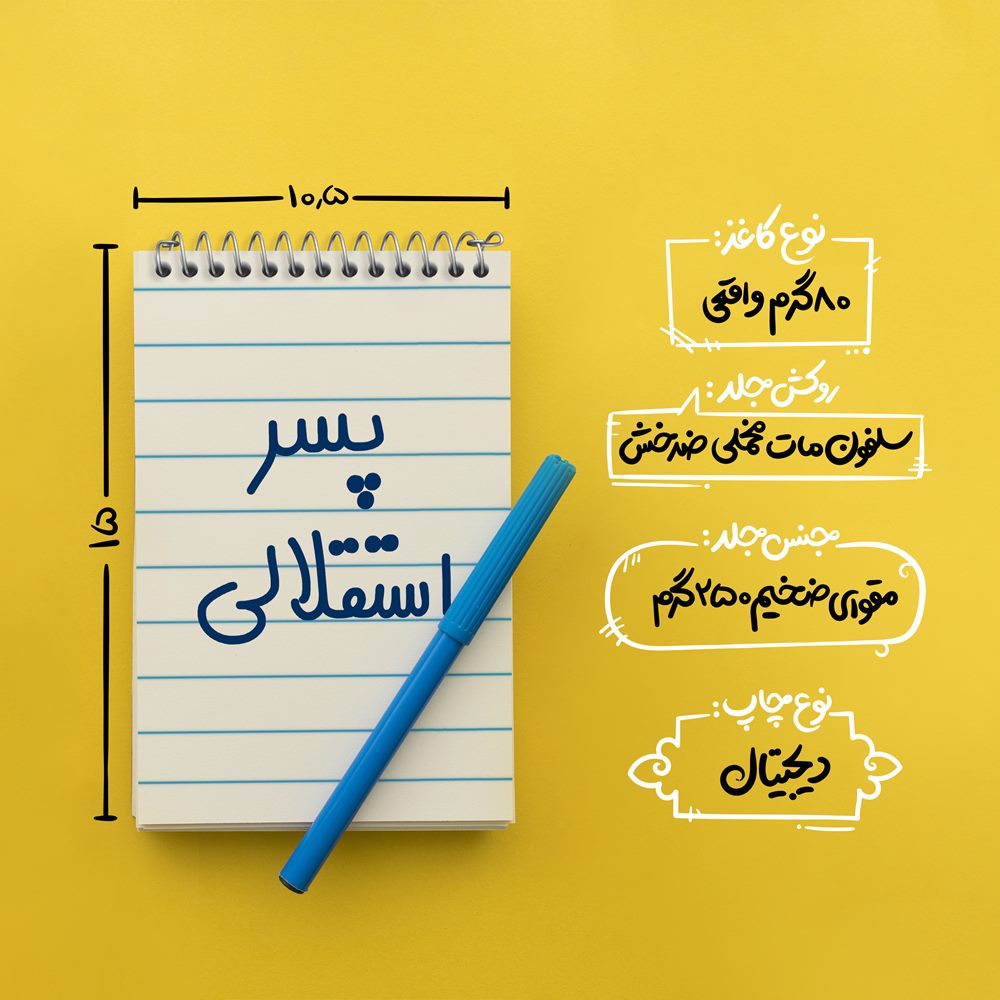 ۱۰٫۵
۱۵
پسر
استقلالی
نوع کاغذ:
۸۰ گرم واقعی
روکش جلد:
سلفون مات مخملی ضدخش
جنس جلد:
مقوای ضخیم ۲۵۰ گرم
نوع چاپ:
دیجیتال